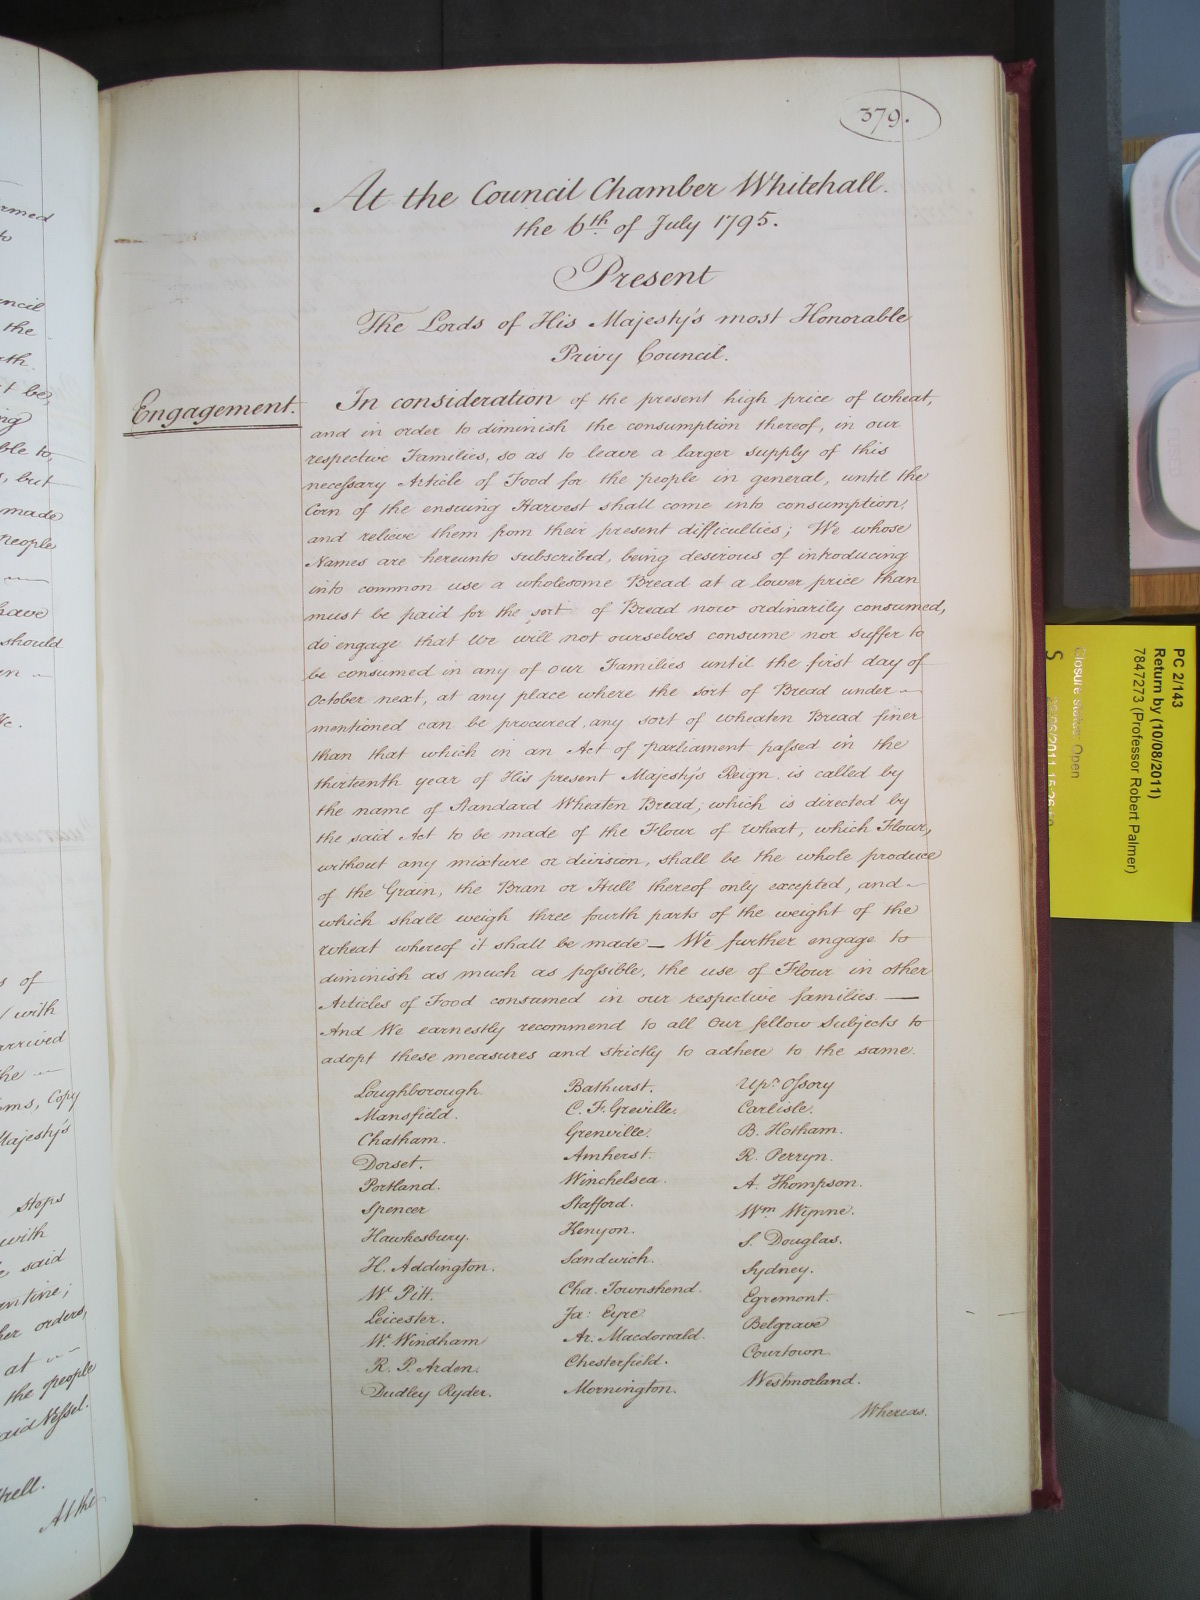 379.
At the Council Chamber Whitehall.
the 6th of July 1795.
Present
The Lords of His Majesty's most Honorable
Privy Council.
Engagement.
In consideration of the present high price of wheat,
and in order to diminish the consumption thereof, in our
respective Families, so as to leave a larger supply of this
necessary Article of Food for the people in general, until the
Corn of the ensuing Harvest shall come into consumption,
and relieve them from their present difficulties; We whose
Names are hereunto subscribed, being desirous of introducing
into common use a wholesome Bread at a lower price than
must be paid for the sort of Bread now ordinarily consumed,
do engage that We will not ourselves consume nor suffer to
be consumed in any of our Families until the first day of
October next, at any place where the sort of Bread under
mentioned can be procured, any sort of wheaten Bread finer
than that which in an Act of parliament passed in the
thirteenth year of His present Majesty's Reign is called by
the name of Standard Wheaten Bread, which is directed by
the said Act to be made of the Flour of wheat, which Flour,
without any mixture or division, shall be the whole produce
of the Grain, the Bran or Hull thereof only excepted, and
which shall weigh three fourth parts of the weight of the
wheat whereof it shall be made — We further engage to
diminish as much as possible, the use of Flour in other
Articles of Food consumed in our respective families. —
And We earnestly recommend to all Our fellow Subjects to
adopt these measures and strictly to adhere to the same.
Loughborough
Mansfield.
Chatham.
Dorset.
Portland.
Spencer
Hawkesbury.
H. Addington.
W. Pitt.
Leicester.
W. Windham
R. P. Arden.
Dudley Ryder.
Bathurst.
C. F. Greville.
Grenville.
Amherst.
Winchelsea.
Stafford.
Kenyon.
Sandwich.
Cha. Townshend.
Ja: Eyre
Ar. Macdonald.
Chesterfield.
Mornington.
Upr. Ossory
Carlisle.
B. Hotham.
R. Perryn.
A. Thompson.
Wm Wynne.
S. Douglas.
Sydney.
Egremont.
Belgrave
Courtown.
Westmorland.
Whereas.
PC 2/143
Return by (10/08/2011)
7847273 (Professor Robert Palmer)
Closure Status: Open
S
to
the
t be,
ble to,
but
made
people
have
should
s of
with
arrived
the
Copy
Majesty's
steps
with
said
orders,
at
the people
said Vessel.
At the